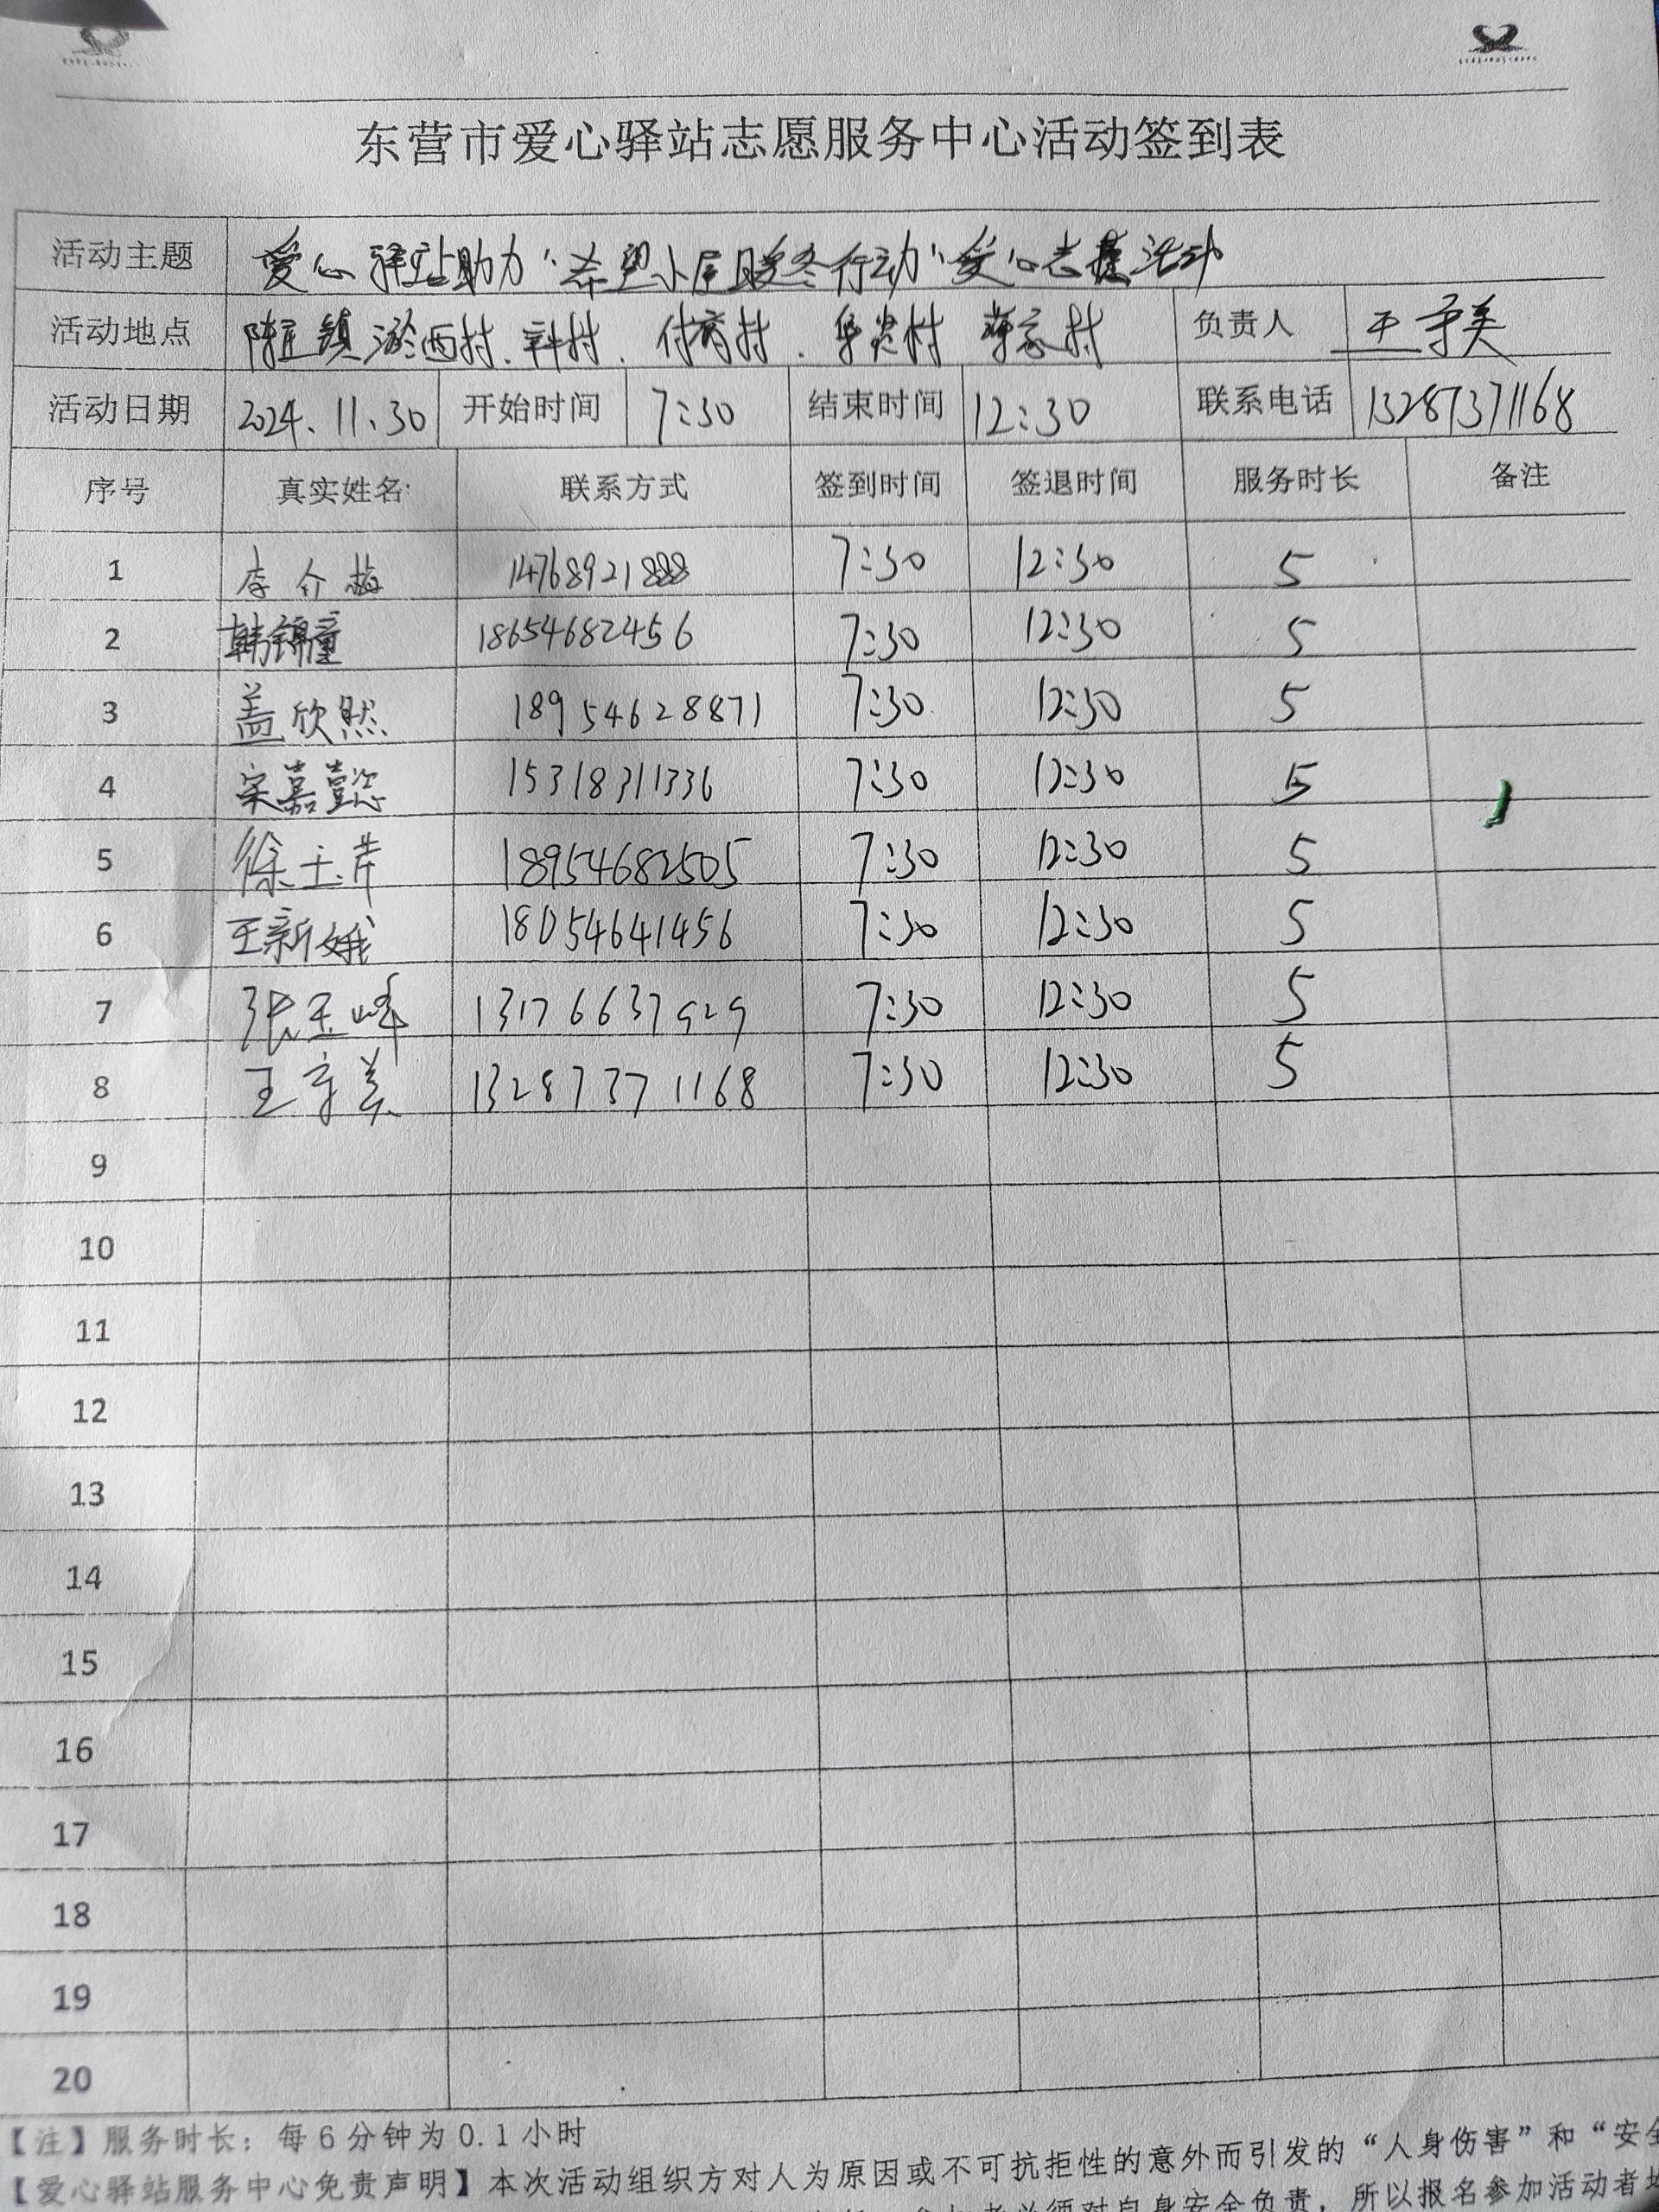 东营市爱心驿站志愿服务中心活动签到表
活动主题 爱心驿站助力“希望小屋暖冬行动”爱心志愿活动
活动地点 陈庄镇 西村、辛村、付 村、 村 薄家村 负责人 王守美
活动日期 2024.11.30 开始时间 7:30 结束时间 12:30 联系电话 13287371168
序号 真实姓名 联系方式 签到时间 签退时间 服务时长 备注
1 李介梅 14768921888 7:30 12:30 5
2 韩锦童 18654682456 7:30 12:30 5
3 盖欣然 18954628871 7:30 12:30 5
4 宋嘉懿 15318311336 7:30 12:30 5
5 徐玉芹 18954682505 7:30 12:30 5
6 王新娥 18054641456 7:30 12:30 5
7 张玉峰 13176637929 7:30 12:30 5
8 王守美 13287371168 7:30 12:30 5
9
10
11
12
13
14
15
16
17
18
19
20
【注】服务时长：每6分钟为0.1小时
【爱心驿站服务中心免责声明】本次活动组织方对人为原因或不可抗拒性的意外而引发的“人身伤害”和“安全
必须对自身安全负责，所以报名参加活动者